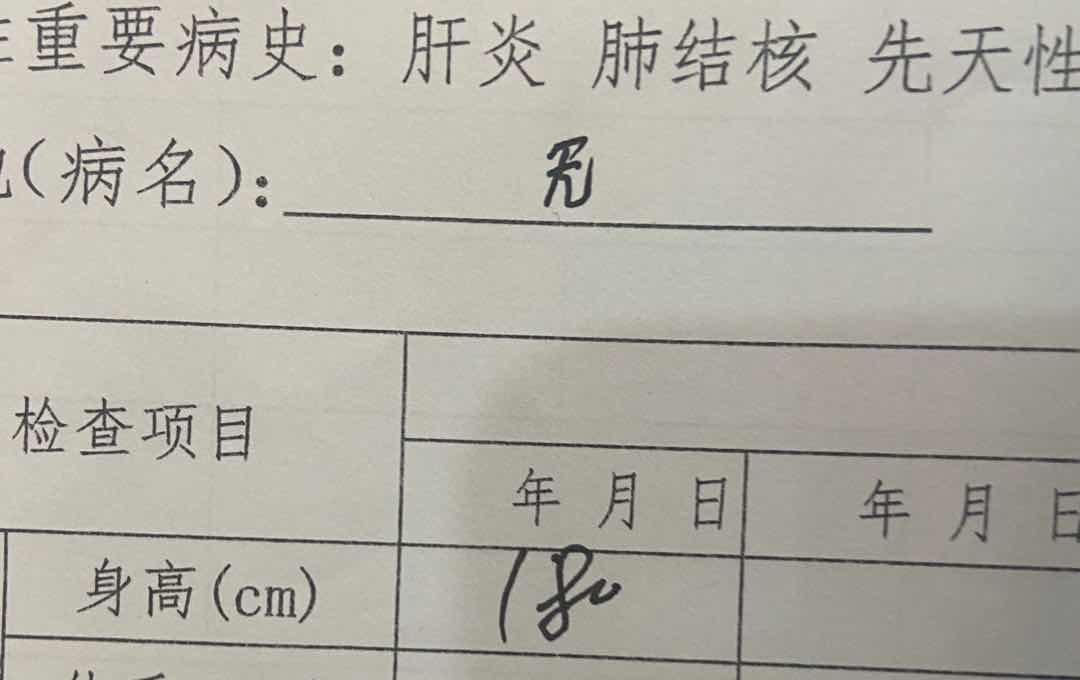 重要病史：肝炎 肺结核 先天性
（病名）：无
检查项目
年 月 日 年 月 日
身高(cm) 180